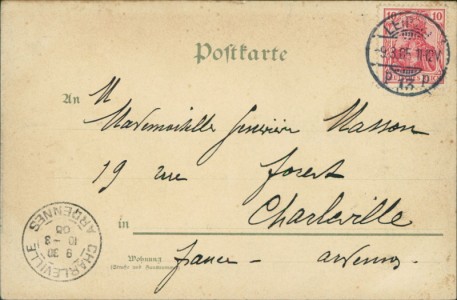 10 10
Postkarte
An
M
Mademoiselle Geneviève Masson
19 rue Forest
Charleville
in
Wohnung
(Straße und Hausnummer)
France - Ardennes
CHARLEVILLE
9 30
10 - 3
05
ARDENNES